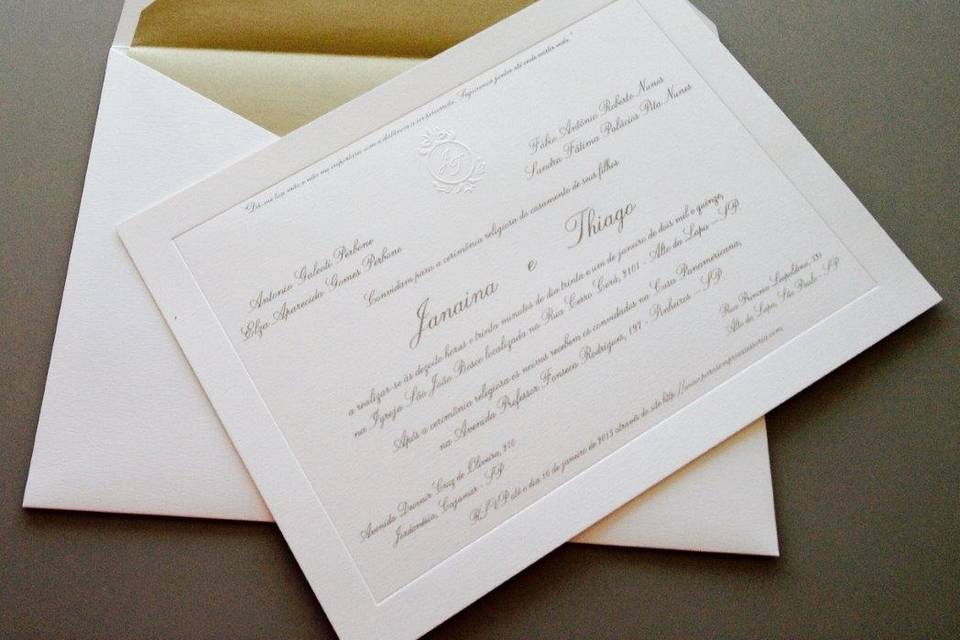 "Dá-me tua mão e não me importarei com a distância a ser percorrida. Seguiremos juntos até onde existir vida."
Antonio Galeoti Perbone
Elza Aparecida Gomes Perbone
Fábio Antônio Roberto Nunes
Sandra Fátima Palácios Pita Nunes
Convidam para a cerimônia religiosa do casamento de seus filhos
Janaina e Thiago
a realizar-se às dezoito horas e trinta minutos do dia trinta e um de janeiro de dois mil e quinze,
na Igreja São João Bosco localizada na Rua Cerro Corá, 2101 - Alto da Lapa - SP
Após a cerimônia religiosa os noivos recebem os convidados na Casa Panamericana,
na Avenida Professor Fonseca Rodrigues, 197 - Pinheiros - SP
Avenida Deovair Cruz de Oliveira, 270
Jordanésia, Cajamar - SP
Rua Princesa Leopoldina, 330
Alto da Lapa, São Paulo - SP
RSVP até o dia 10 de janeiro de 2015 através do site http://www.parasempreassessoria.com